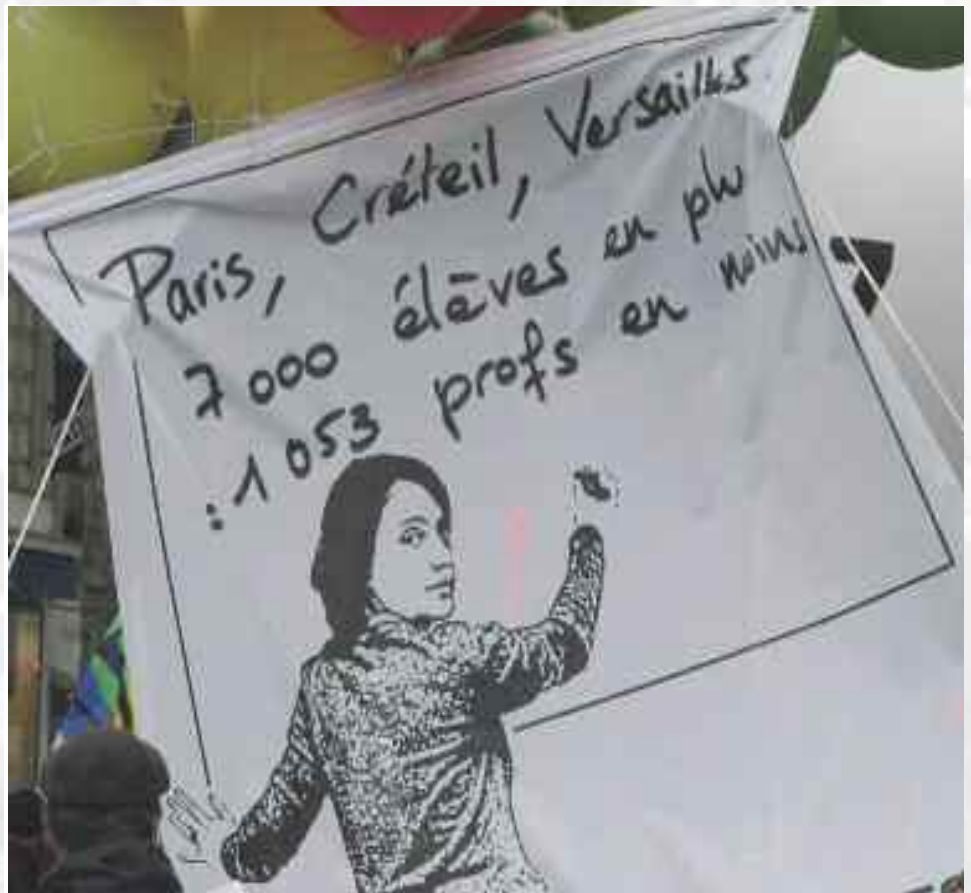 Paris, Créteil, Versailles
7 000 élèves en plus
: 1 053 profs en moins